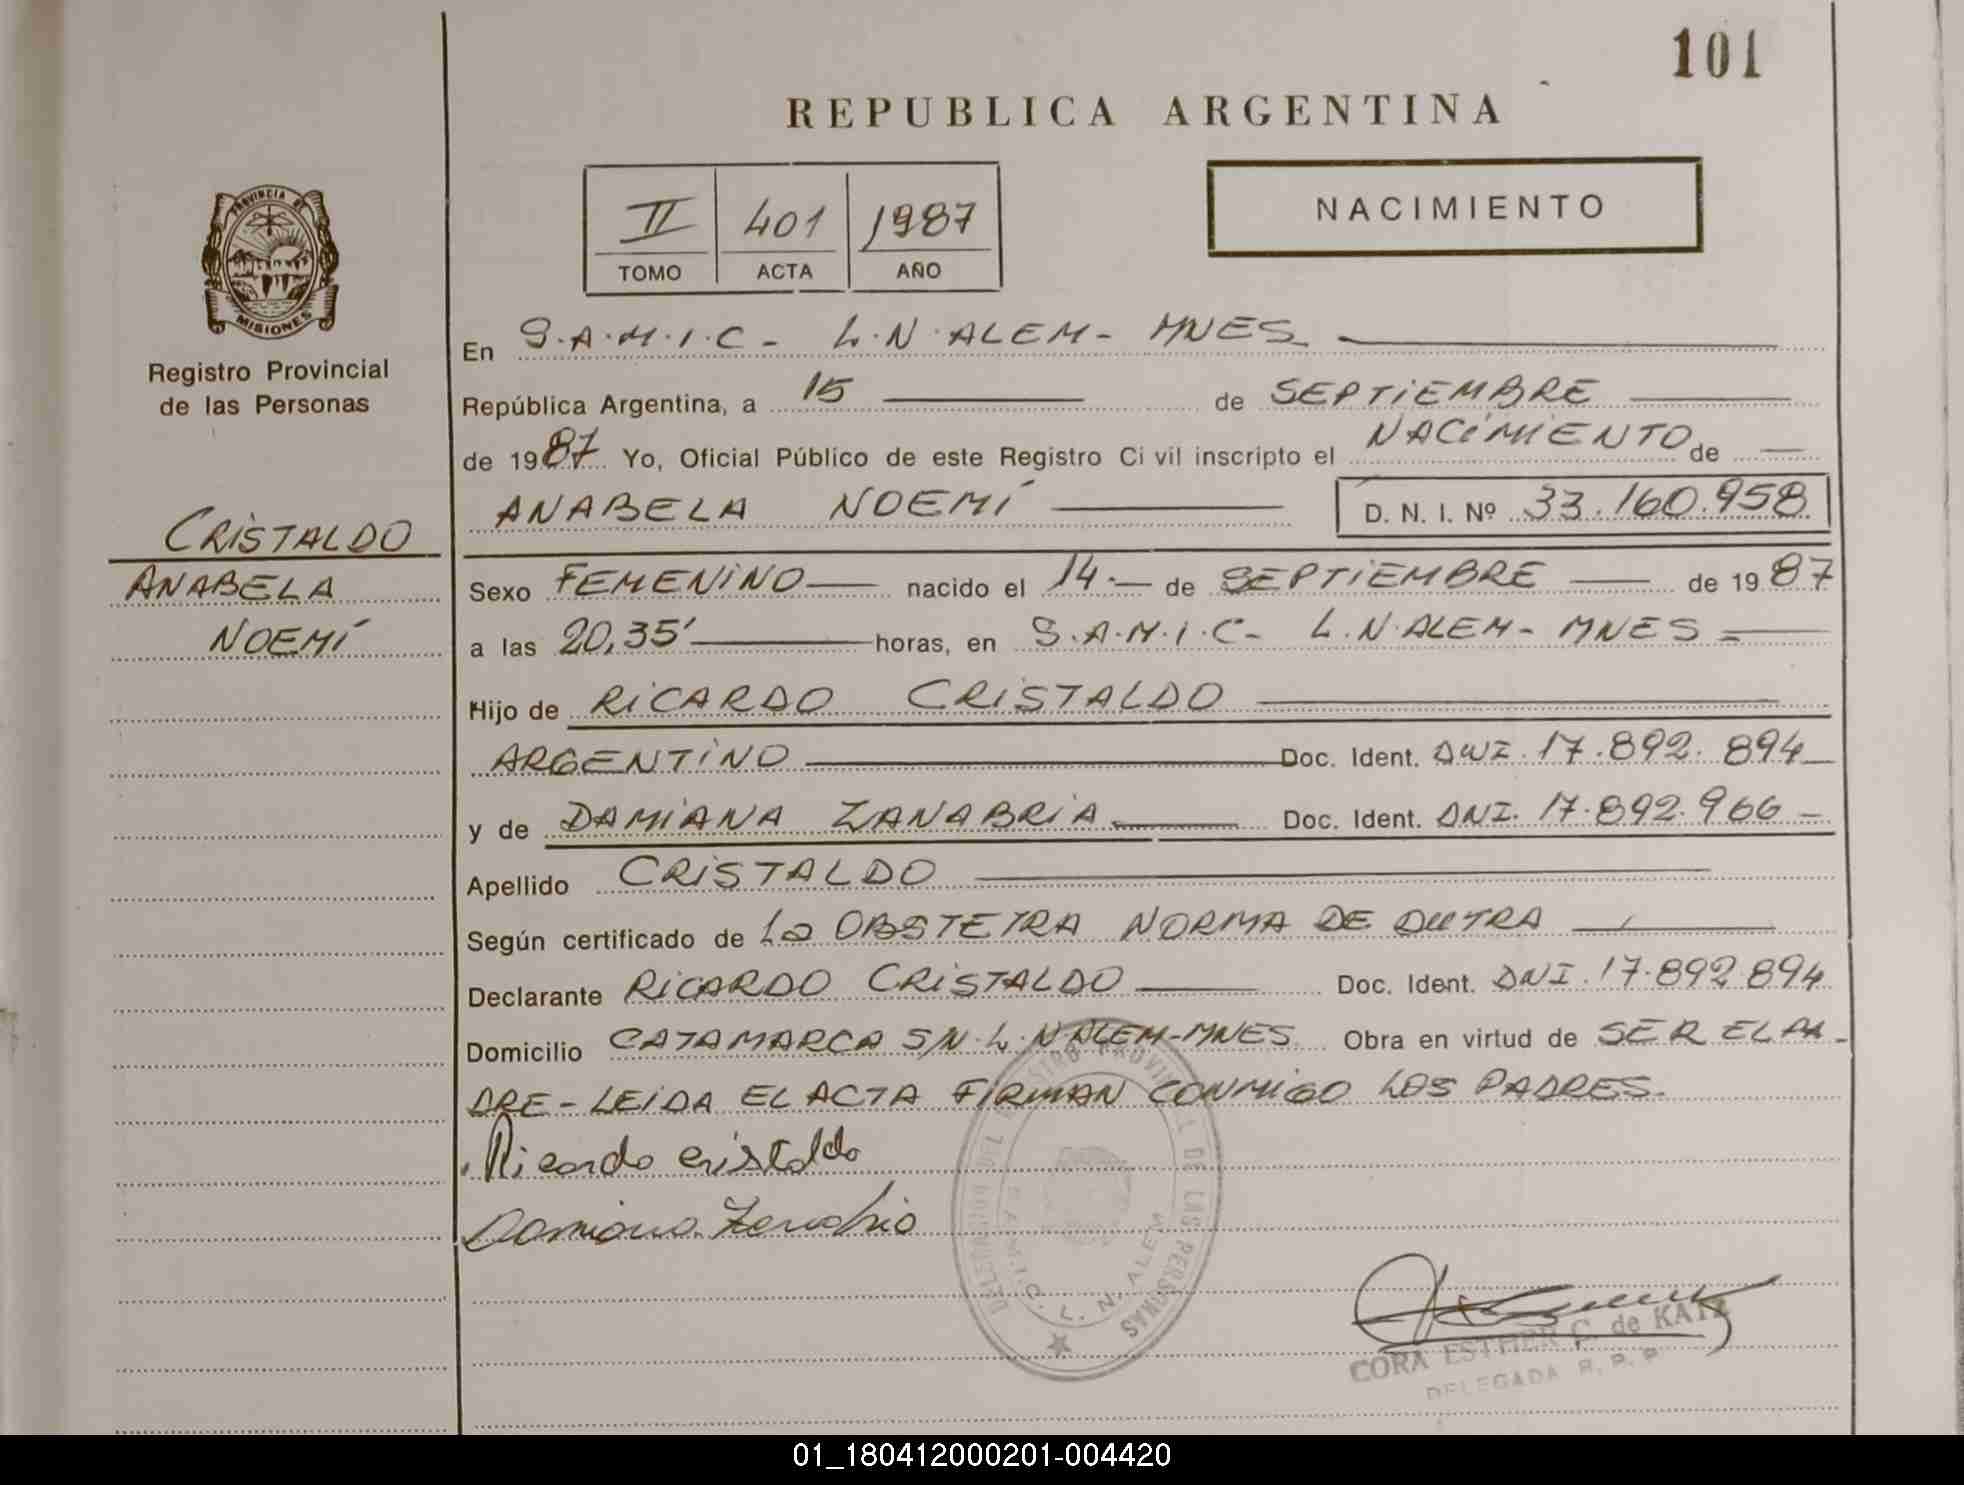 101
REPUBLICA ARGENTINA
II 401 1987
TOMO ACTA AÑO
NACIMIENTO
PROVINCIA DE
MISIONES
Registro Provincial
de las Personas
CRISTALDO
ANABELA
NOEMÍ
En S.A.M.I.C- L.N.ALEM- MNES
República Argentina, a 15 de SEPTIEMBRE
de 1987 Yo, Oficial Público de este Registro Ci vil inscripto el NACIMIENTO de
ANABELA NOEMÍ D. N. I. Nº 33.160.958
Sexo FEMENINO nacido el 14. de SEPTIEMBRE de 1987
a las 20,35' horas, en S.A.M.I.C- L.N.ALEM- MNES
Hijo de RICARDO CRISTALDO
ARGENTINO Doc. Ident. DNI. 17.892.894
y de DAMIANA ZANABRIA Doc. Ident. DNI. 17.892.966
Apellido CRISTALDO
Según certificado de La OBSTETRA NORMA DE DUTRA
Declarante RICARDO CRISTALDO Doc. Ident. DNI. 17.892.894
Domicilio CATAMARCA S/N.L.N ALEM-MNES Obra en virtud de SER EL PA-
DRE-LEIDA EL ACTA FIRMAN CONMIGO LOS PADRES.
Ricardo cristaldo
Damiana Zanabria
DELEGACION DEL REGISTRO PROVINCIAL DE LAS PERSONAS
S.A.M.I.C. L. N. ALEM
CORA ESTHER C. de KATZ
DELEGADA R. P. P
01_180412000201-004420